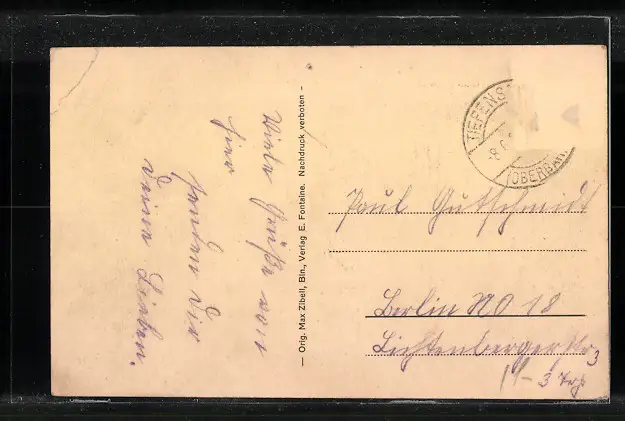 Viele Grüße von
hier
senden dir
deine Lieben.
— Orig. Max Zibell, Bln., Verlag E. Fontaine. Nachdruck verboten —
TIEFENS
-8.6
(OBERBAR
Paul Gutschmidt
Berlin NO 18
Lichtenbergerstr 3
3 Trp